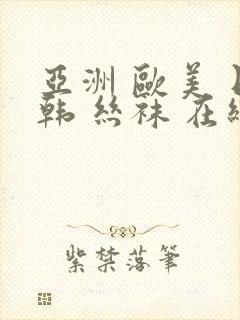 亞洲歐美
韩絲袜在
紫禁落筆